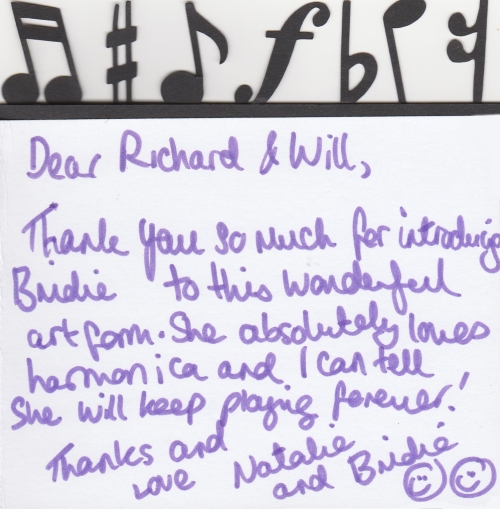 Dear Richard & Will,
Thank you so much for introducing
Birdie to this wonderful
artform. She absolutely loves
harmonica and I can tell
she will keep playing forever!
Thanks and
love Natalie
and Birdie